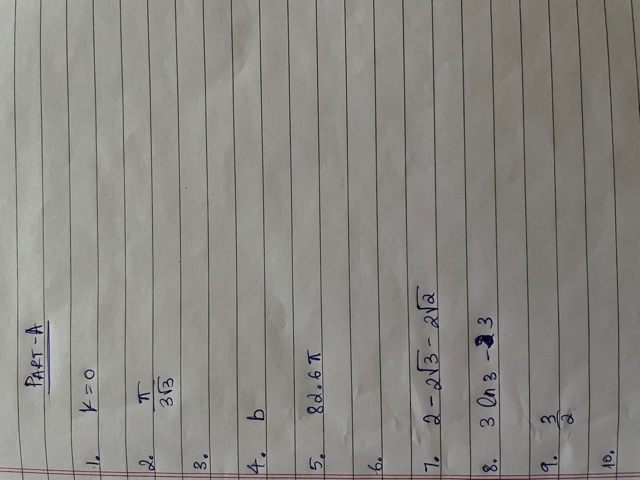 PART-A
1. K=0
2. π/3√3
3.
4. b
5. 82.6 π
6.
7. 2 - 2√3 - 2√2
8. 3 ln 3 - 3
9. 3/2
10.